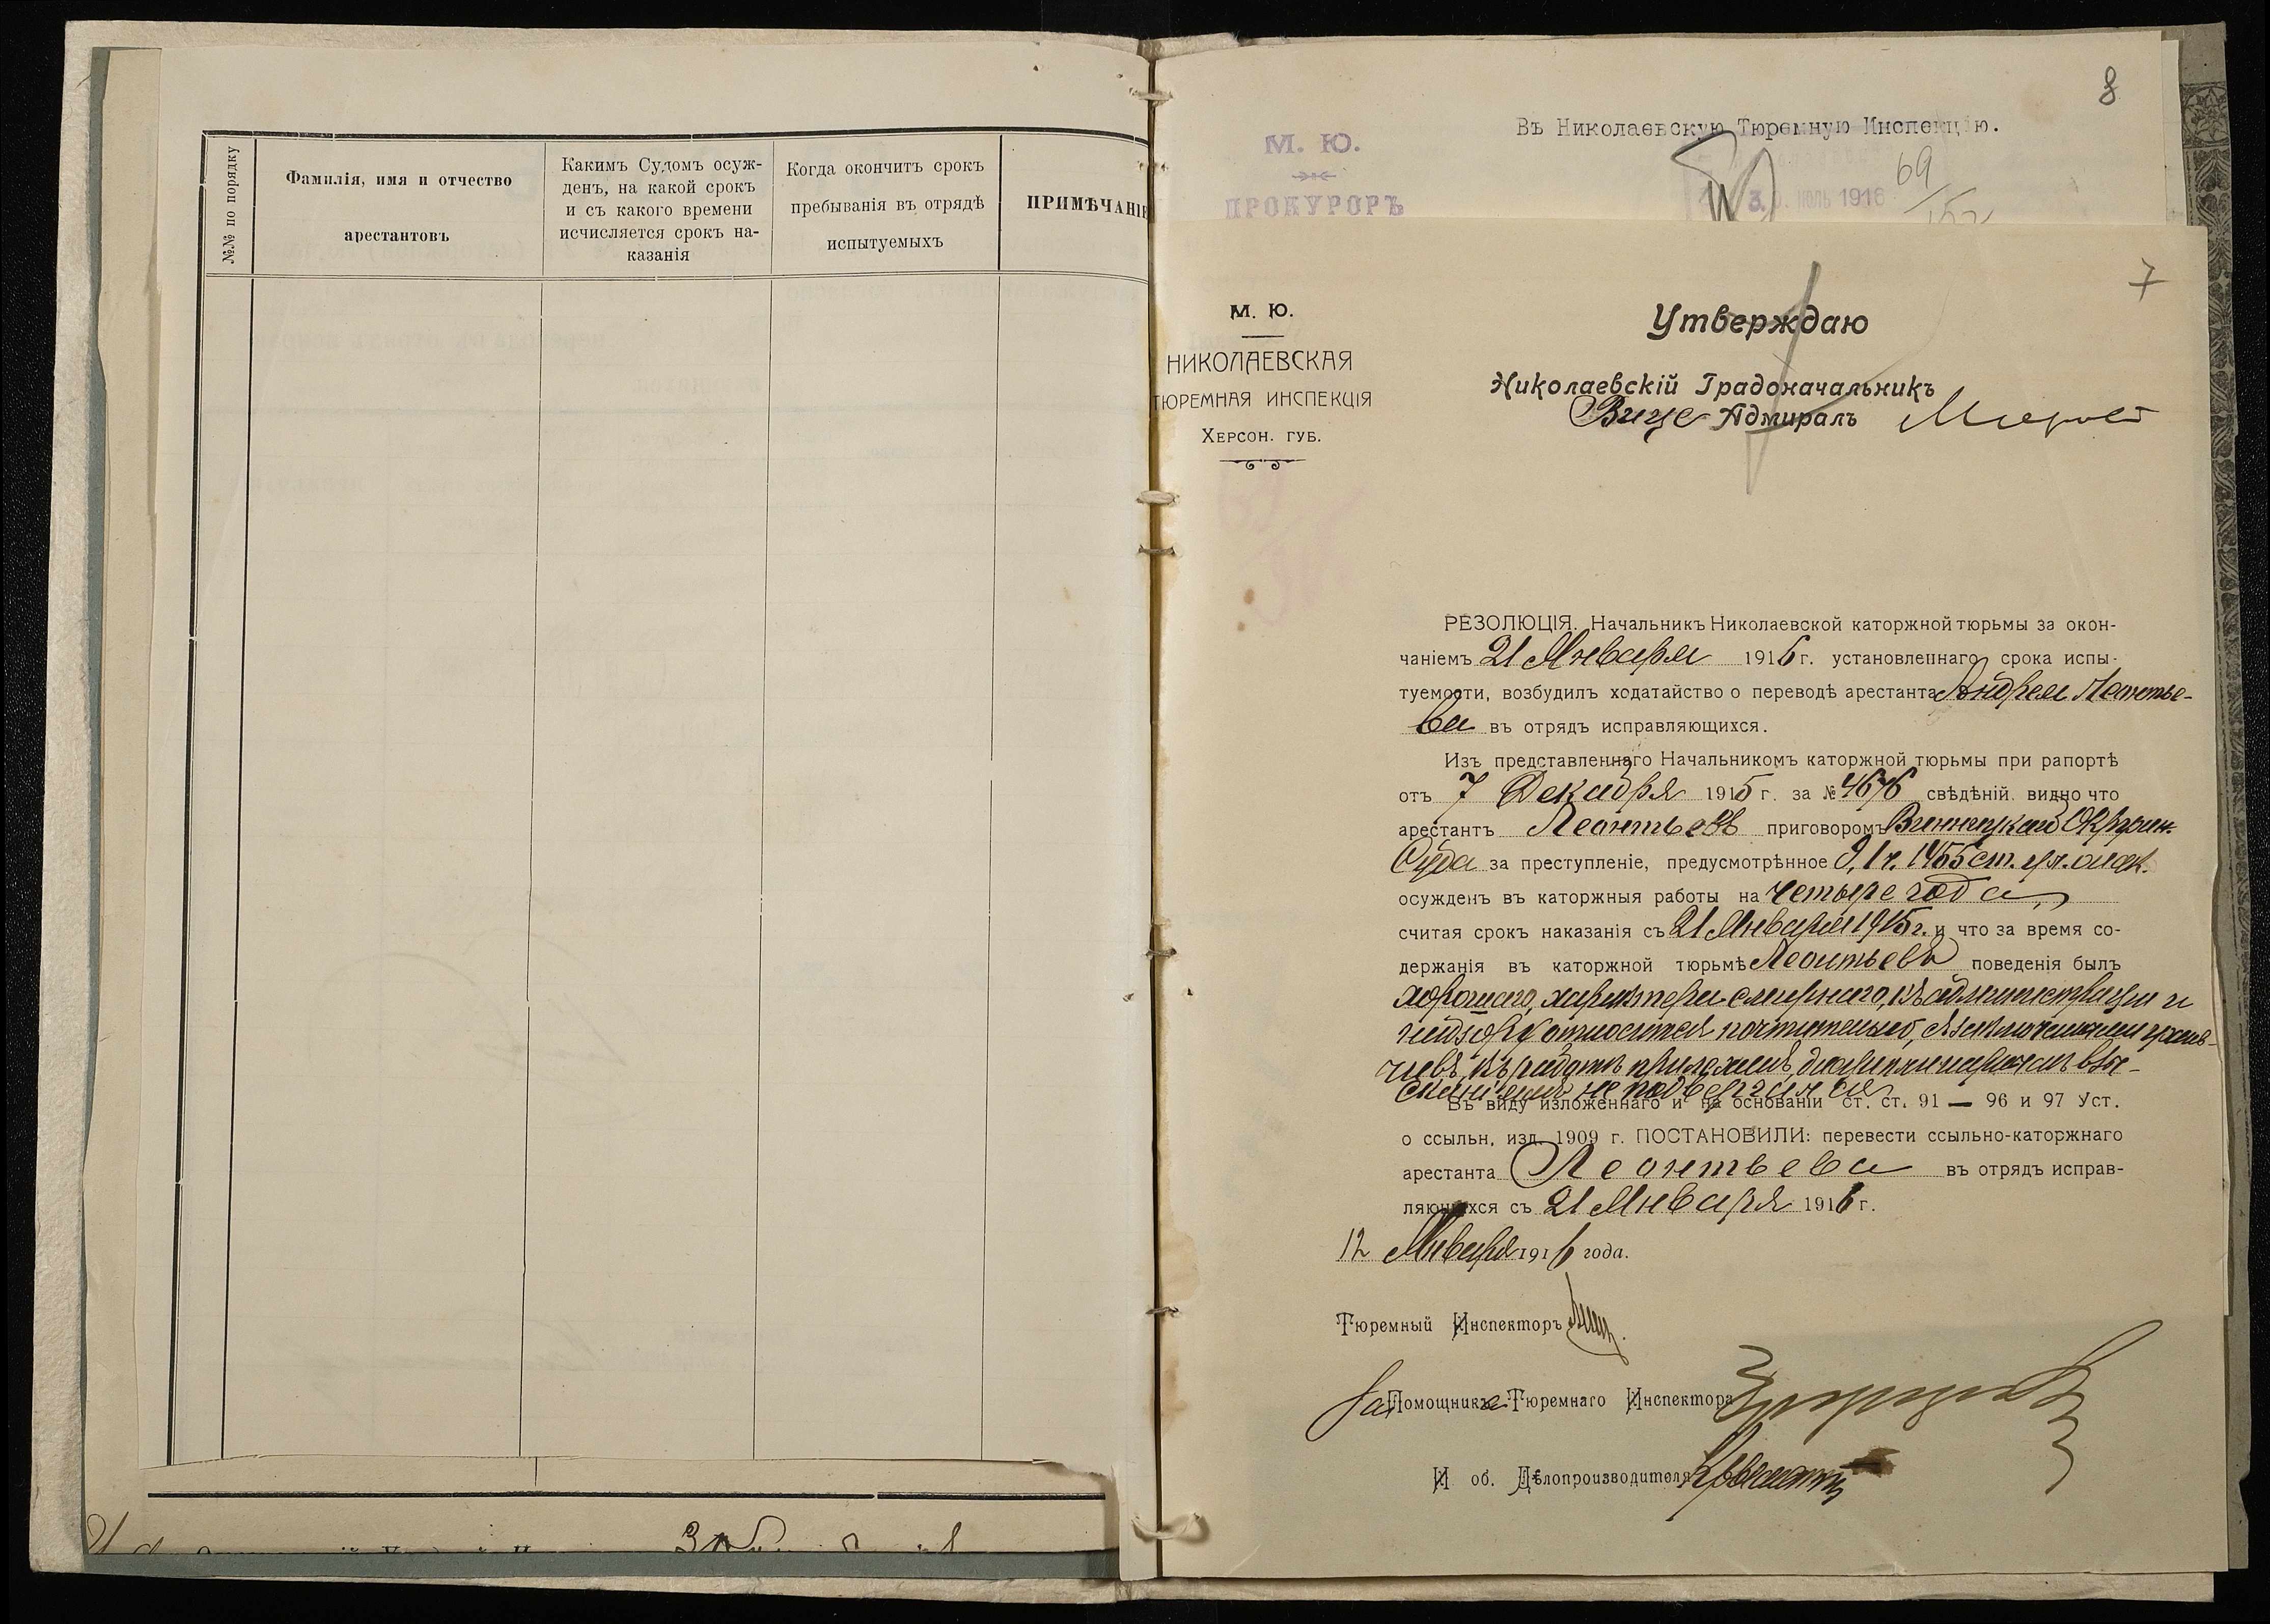 №№ по порядку
Фамилія, имя и отчество
арестантовъ
Какимъ Судомъ осуж-
денъ, на какой срокъ
и съ какого времени
исчисляется срокъ на-
казанія
Когда окончитъ срокъ
пребыванія въ отрядѣ
испытуемыхъ
ПРИМѢЧАНІЕ
8
Въ Николаевскую Тюремную Инспекцію.
М. Ю.
ПРОКУРОРЪ
30. ІЮЛЬ 1916
69
7
М. Ю.
НИКОЛАЕВСКАЯ
ТЮРЕМНАЯ ИНСПЕКЦІЯ
Херсон. губ.
Утверждаю
Николаевскій Градоначальникъ
Вице-Адмиралъ
РЕЗОЛЮЦІЯ. Начальникъ Николаевской каторжной тюрьмы за окон-
чаніемъ 21 Января 1916 г. установленнаго срока испы-
туемости, возбудилъ ходатайство о переводѣ арестанта Андрея Леонтье-
ва въ отрядъ исправляющихся.
Изъ представленнаго Начальникомъ каторжной тюрьмы при рапортѣ
отъ 7 Декабря 1915 г. за № 4676 свѣдѣній видно что
арестантъ Леонтьевъ приговоромъ Винницкаго Окружн.
Суда за преступленіе, предусмотрѣнное 9, 1 ч. 1455 ст. ул. о нак.
осужденъ въ каторжныя работы на четыре года,
считая срокъ наказанія съ 21 Января 1915 г. и что за время со-
держанія въ каторжной тюрьмѣ Леонтьевъ поведенія былъ
хорошаго, характера смирнаго, къ администраціи и
надзору относится почтительно, съ заключенными ужив-
чивъ, къ работѣ прилеженъ, дисциплинарнымъ взы-
сканіямъ не подвергался
Въ виду изложеннаго и на основаніи ст. ст. 91 — 96 и 97 Уст.
о ссыльн. изд. 1909 г. ПОСТАНОВИЛИ: перевести ссыльно-каторжнаго
арестанта Леонтьева въ отрядъ исправ-
ляющихся съ 21 Января 1916 г.
12 Января 1916 года.
Тюремный Инспекторъ
За Помощника Тюремнаго Инспектора
И об. Дѣлопроизводителя